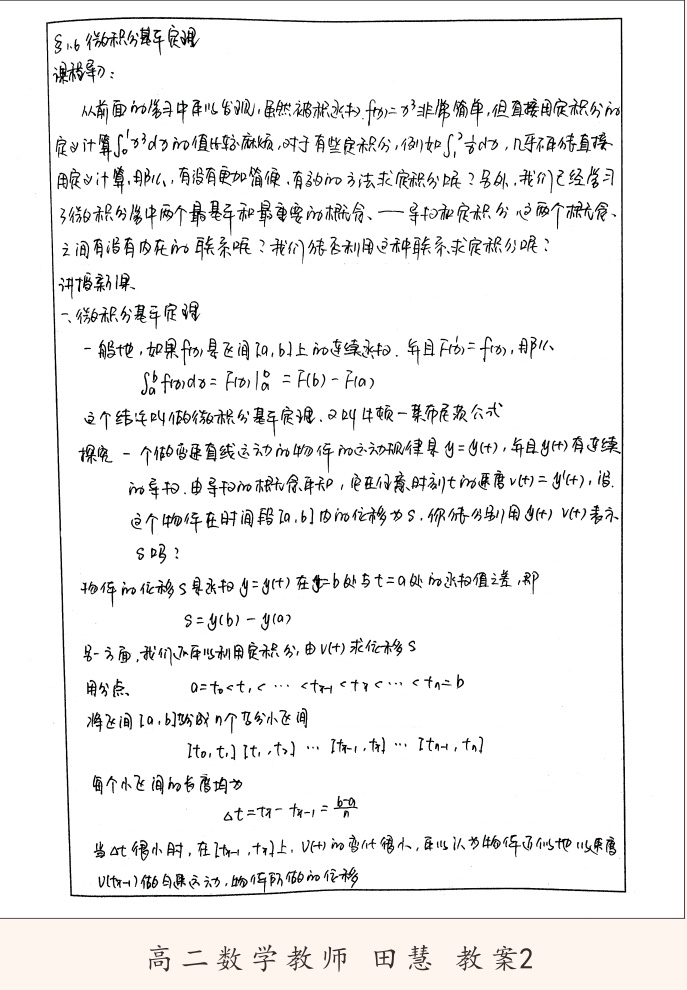 §1.6 微积分基本定理
课程导入:
从前面的学习中可以发现,虽然被积函数f(x)=x³非常简单,但直接用定积分的
定义计算∫₀¹x³dx的值比较麻烦,对于有些定积分,例如∫₁²1/x dx,几乎不可能直接
用定义计算,那么,有没有更加简便、有效的方法求定积分呢?另外,我们已经学习
了微积分学中两个最基本和最重要的概念、——导数和定积分,这两个概念、
之间有没有内在的联系呢?我们能否利用这种联系求定积分呢?
讲授新课
一、微积分基本定理
一般地,如果f(x)是区间[a,b]上的连续函数.并且F'(x)=f(x),那么、
∫ₐᵇf(x)dx=F(x)|ₐᵇ=F(b)-F(a)
这个结论叫做微积分基本定理.又叫牛顿—莱布尼兹公式
探究 一个做变速直线运动的物体的运动规律是y=y(t),并且y(t)有连续
的导数.由导数的概念可知,它在任意时刻t的速度v(t)=y'(t),设
这个物体在时间段[a,b]内的位移为S.你能分别用y(t) v(t)表示
S吗?
物体的位移S是函数y=y(t)在t=b处与t=a处的函数值之差,即
S=y(b)-y(a)
另一方面,我们还可以利用定积分,由v(t)求位移S
用分点、 a=t₀<t₁<…<tᵢ₋₁<tᵢ<…<tₙ=b
将区间[a,b]等分成n个等分小区间
[t₀,t₁][t₁,t₂]…[tᵢ₋₁,tᵢ]…[tₙ₋₁,tₙ]
每个小区间的长度均为
Δt=tᵢ-tᵢ₋₁=(b-a)/n
当Δt很小时,在[tᵢ₋₁,tᵢ]上,v(t)的变化很小,可以认为物体近似地以速度
v(tᵢ₋₁)做匀速运动,物体所做的位移
高二数学教师 田慧 教案2